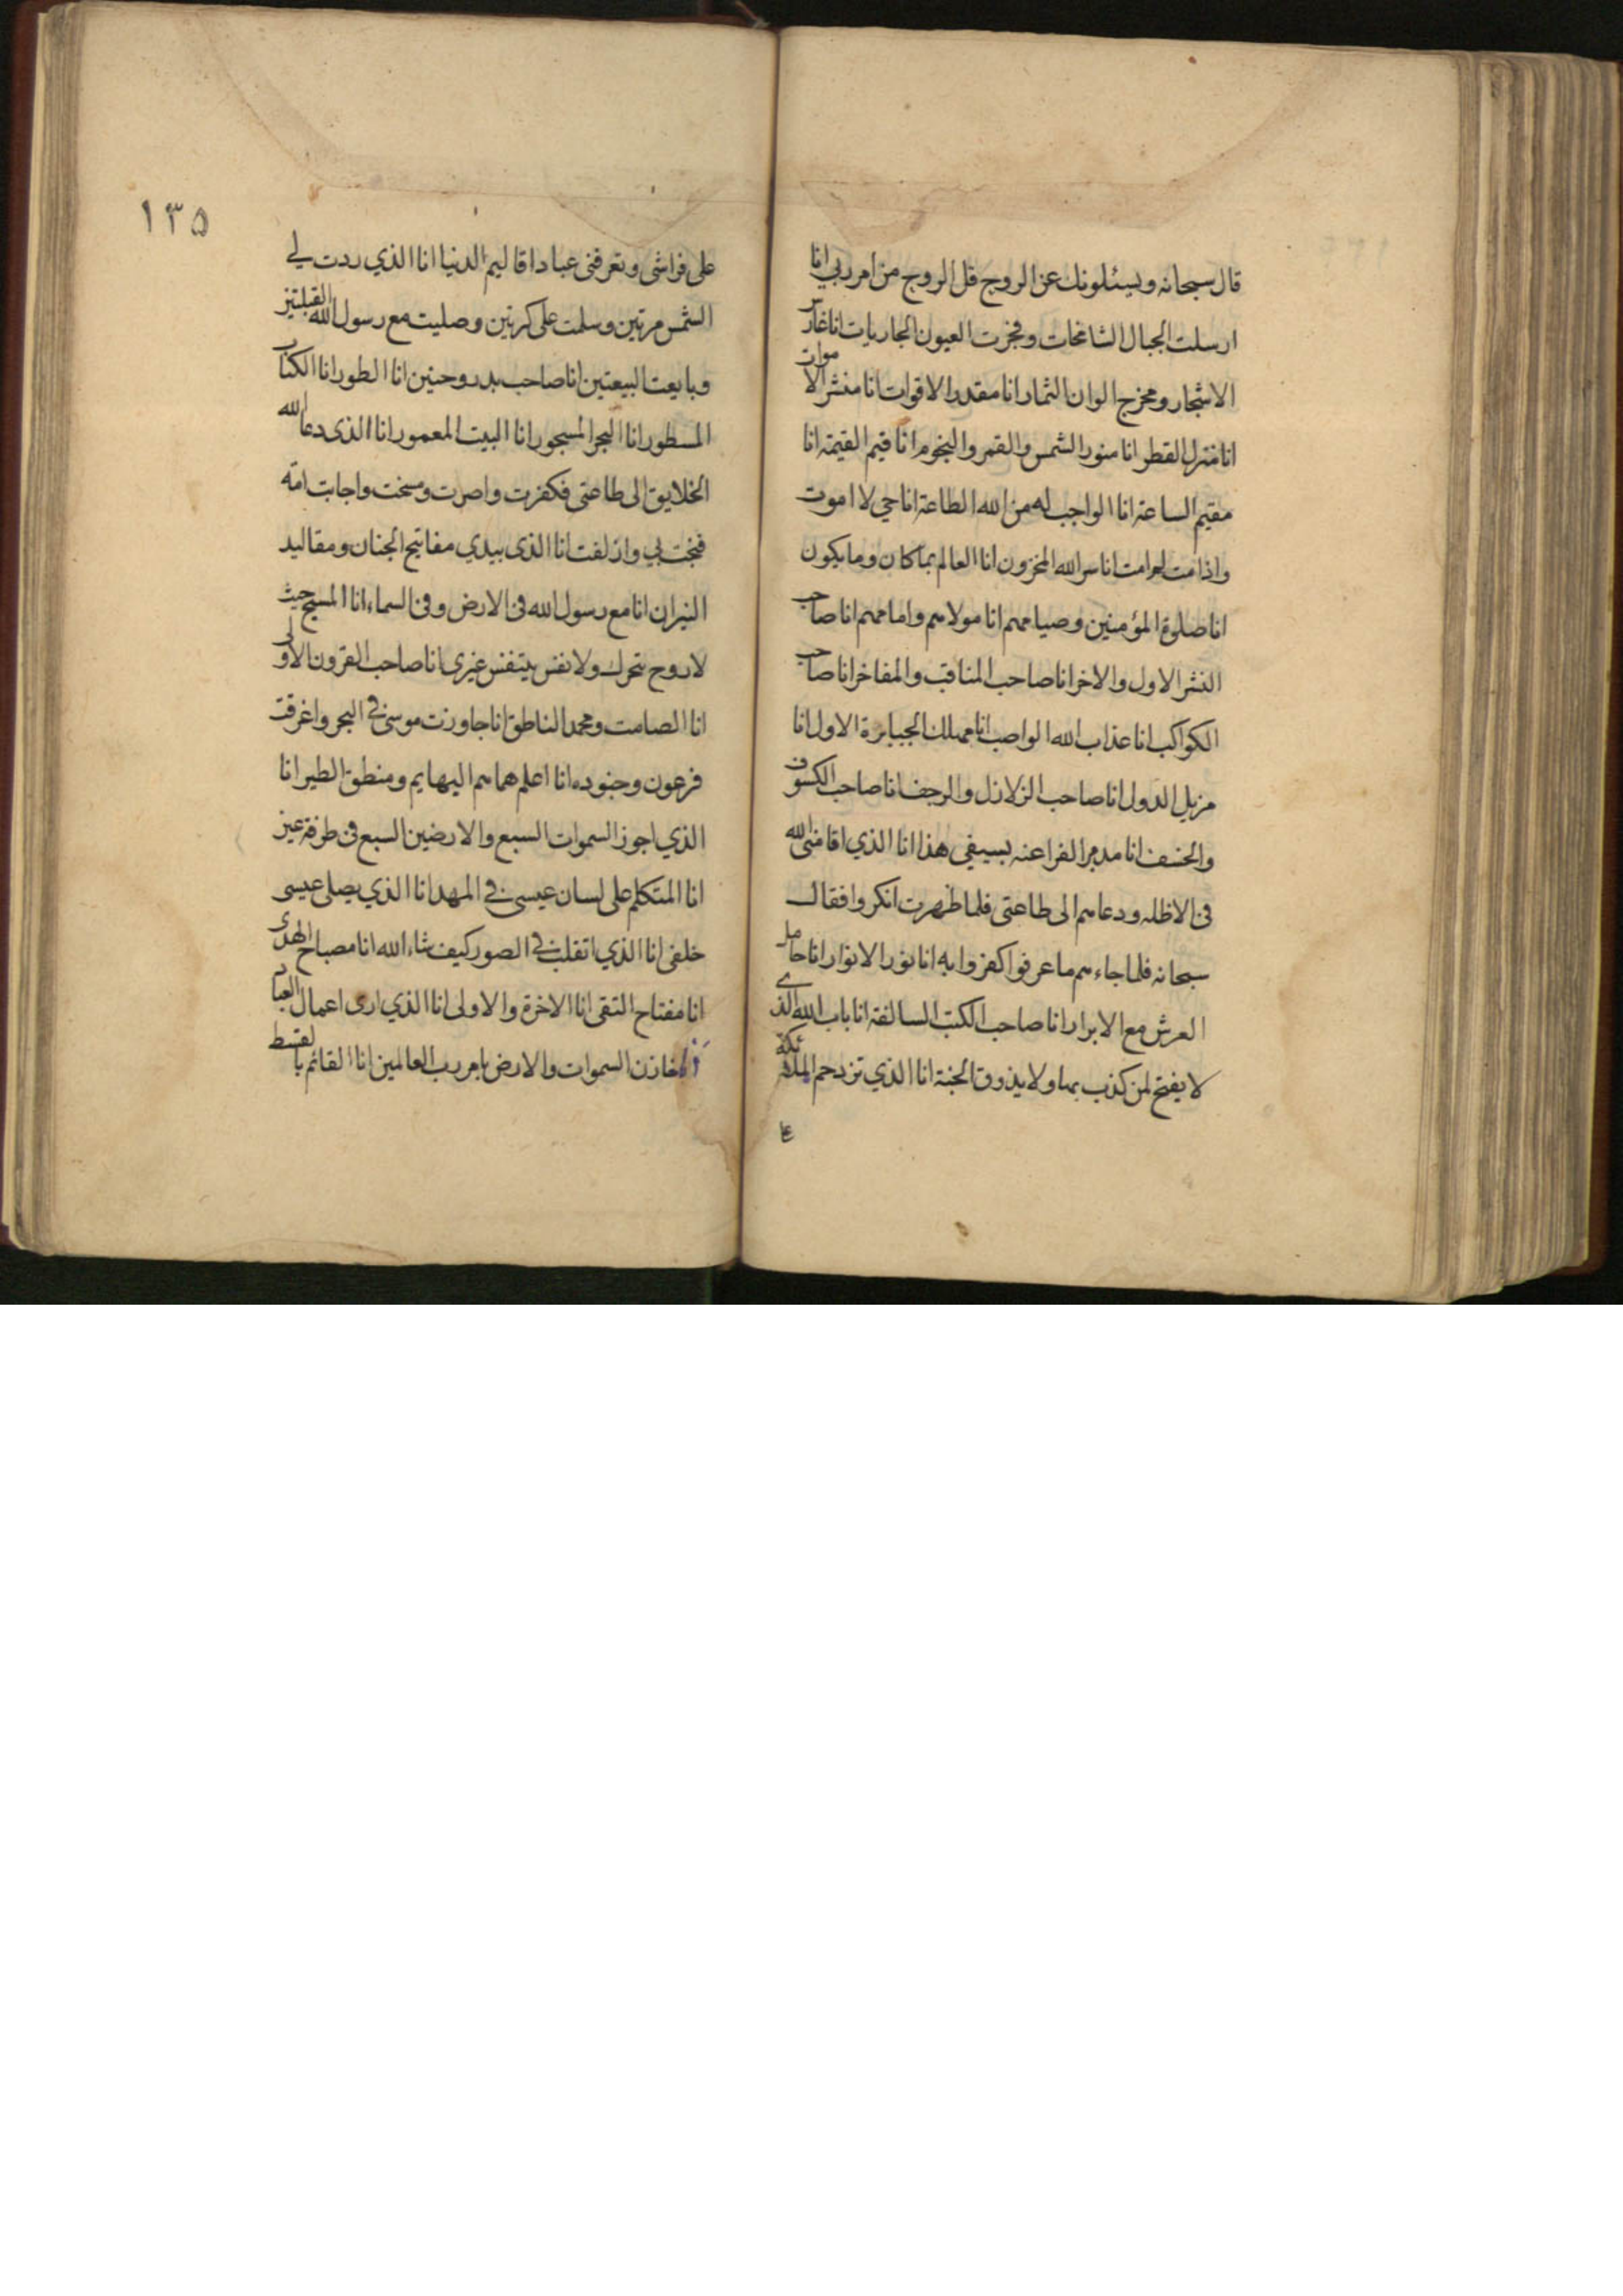 قال سبحانه ويسئلونك عن الروح قل الروح من امر ربي انا
ارسلت الجبال الشامخات وفجرت العيون الجاريات انا غارس
الاشجار ومخرج الوان الثمار انا مقدر الاقوات انا منشر الاموات
انا منزل القطر انا منور الشمس والقمر والنجوم انا قيم القيمة انا
مقيم الساعة انا الواجب له من الله الطاعة انا حي لا اموت
واذا مت لم امت انا سر الله المخزون انا العالم بما كان وما يكون
انا صلوة المؤمنين وصيامهم انا مولاهم وامامهم انا صاحب
النشر الاول والاخر انا صاحب المناقب والمفاخر انا صاحب
الكواكب انا عذاب الله الواصب انا مهلك الجبابرة الاول انا
مزيل الدول انا صاحب الزلازل والرجف انا صاحب الكسوف
والخسف انا مدمر الفراعنه بسيفي هذا انا الذي اقامني الله
في الاظله ودعاهم الى طاعتي فلما ظهرت انكروا فقال
سبحانه فلما جاءهم ما عرفوا كفروا به انا نور الانوار انا حامل
العرش مع الابرار انا صاحب الكتب السالفة انا باب الله الذي
لا يفتح لمن كذب بها ولا يذوق الجنة انا الذي تزدحم الملائكة
١٣٥
على فراشي وتعرفني عباد اقاليم الدنيا انا الذي ردت لي
الشمس مرتين وسلمت على كرتين وصليت مع رسول الله القبلتين
وبايعت البيعتين انا صاحب بدر وحنين انا الطور انا الكتاب
المسطور انا البحر المسجور انا البيت المعمور انا الذي دعا الله
الخلايق الى طاعتي فكفرت واصرت ومسخت واجابت امة
فنجت بي وازلفت انا الذي بيدي مفاتيح الجنان ومقاليد
النيران انا مع رسول الله في الارض وفي السماء انا المسيح حيث
لا روح يتحرك ولا نفس يتنفس غيري انا صاحب القرون الاولى
انا الصامت ومحمد الناطق انا جاوزت موسى في البحر واغرقت
فرعون وجنوده انا اعلم هماهم البهايم ومنطق الطير انا
الذي اجوز السموات السبع والارضين السبع في طرفة عين
انا المتكلم على لسان عيسى في المهد انا الذي يصلي عيسى
خلفي انا الذي اتقلب في الصور كيف شاء الله انا مصباح الهدى
انا مفتاح التقى انا الاخرة والاولى انا الذي ارى اعمال العباد
انا خازن السموات والارض بامر رب العالمين انا القائم بالقسط